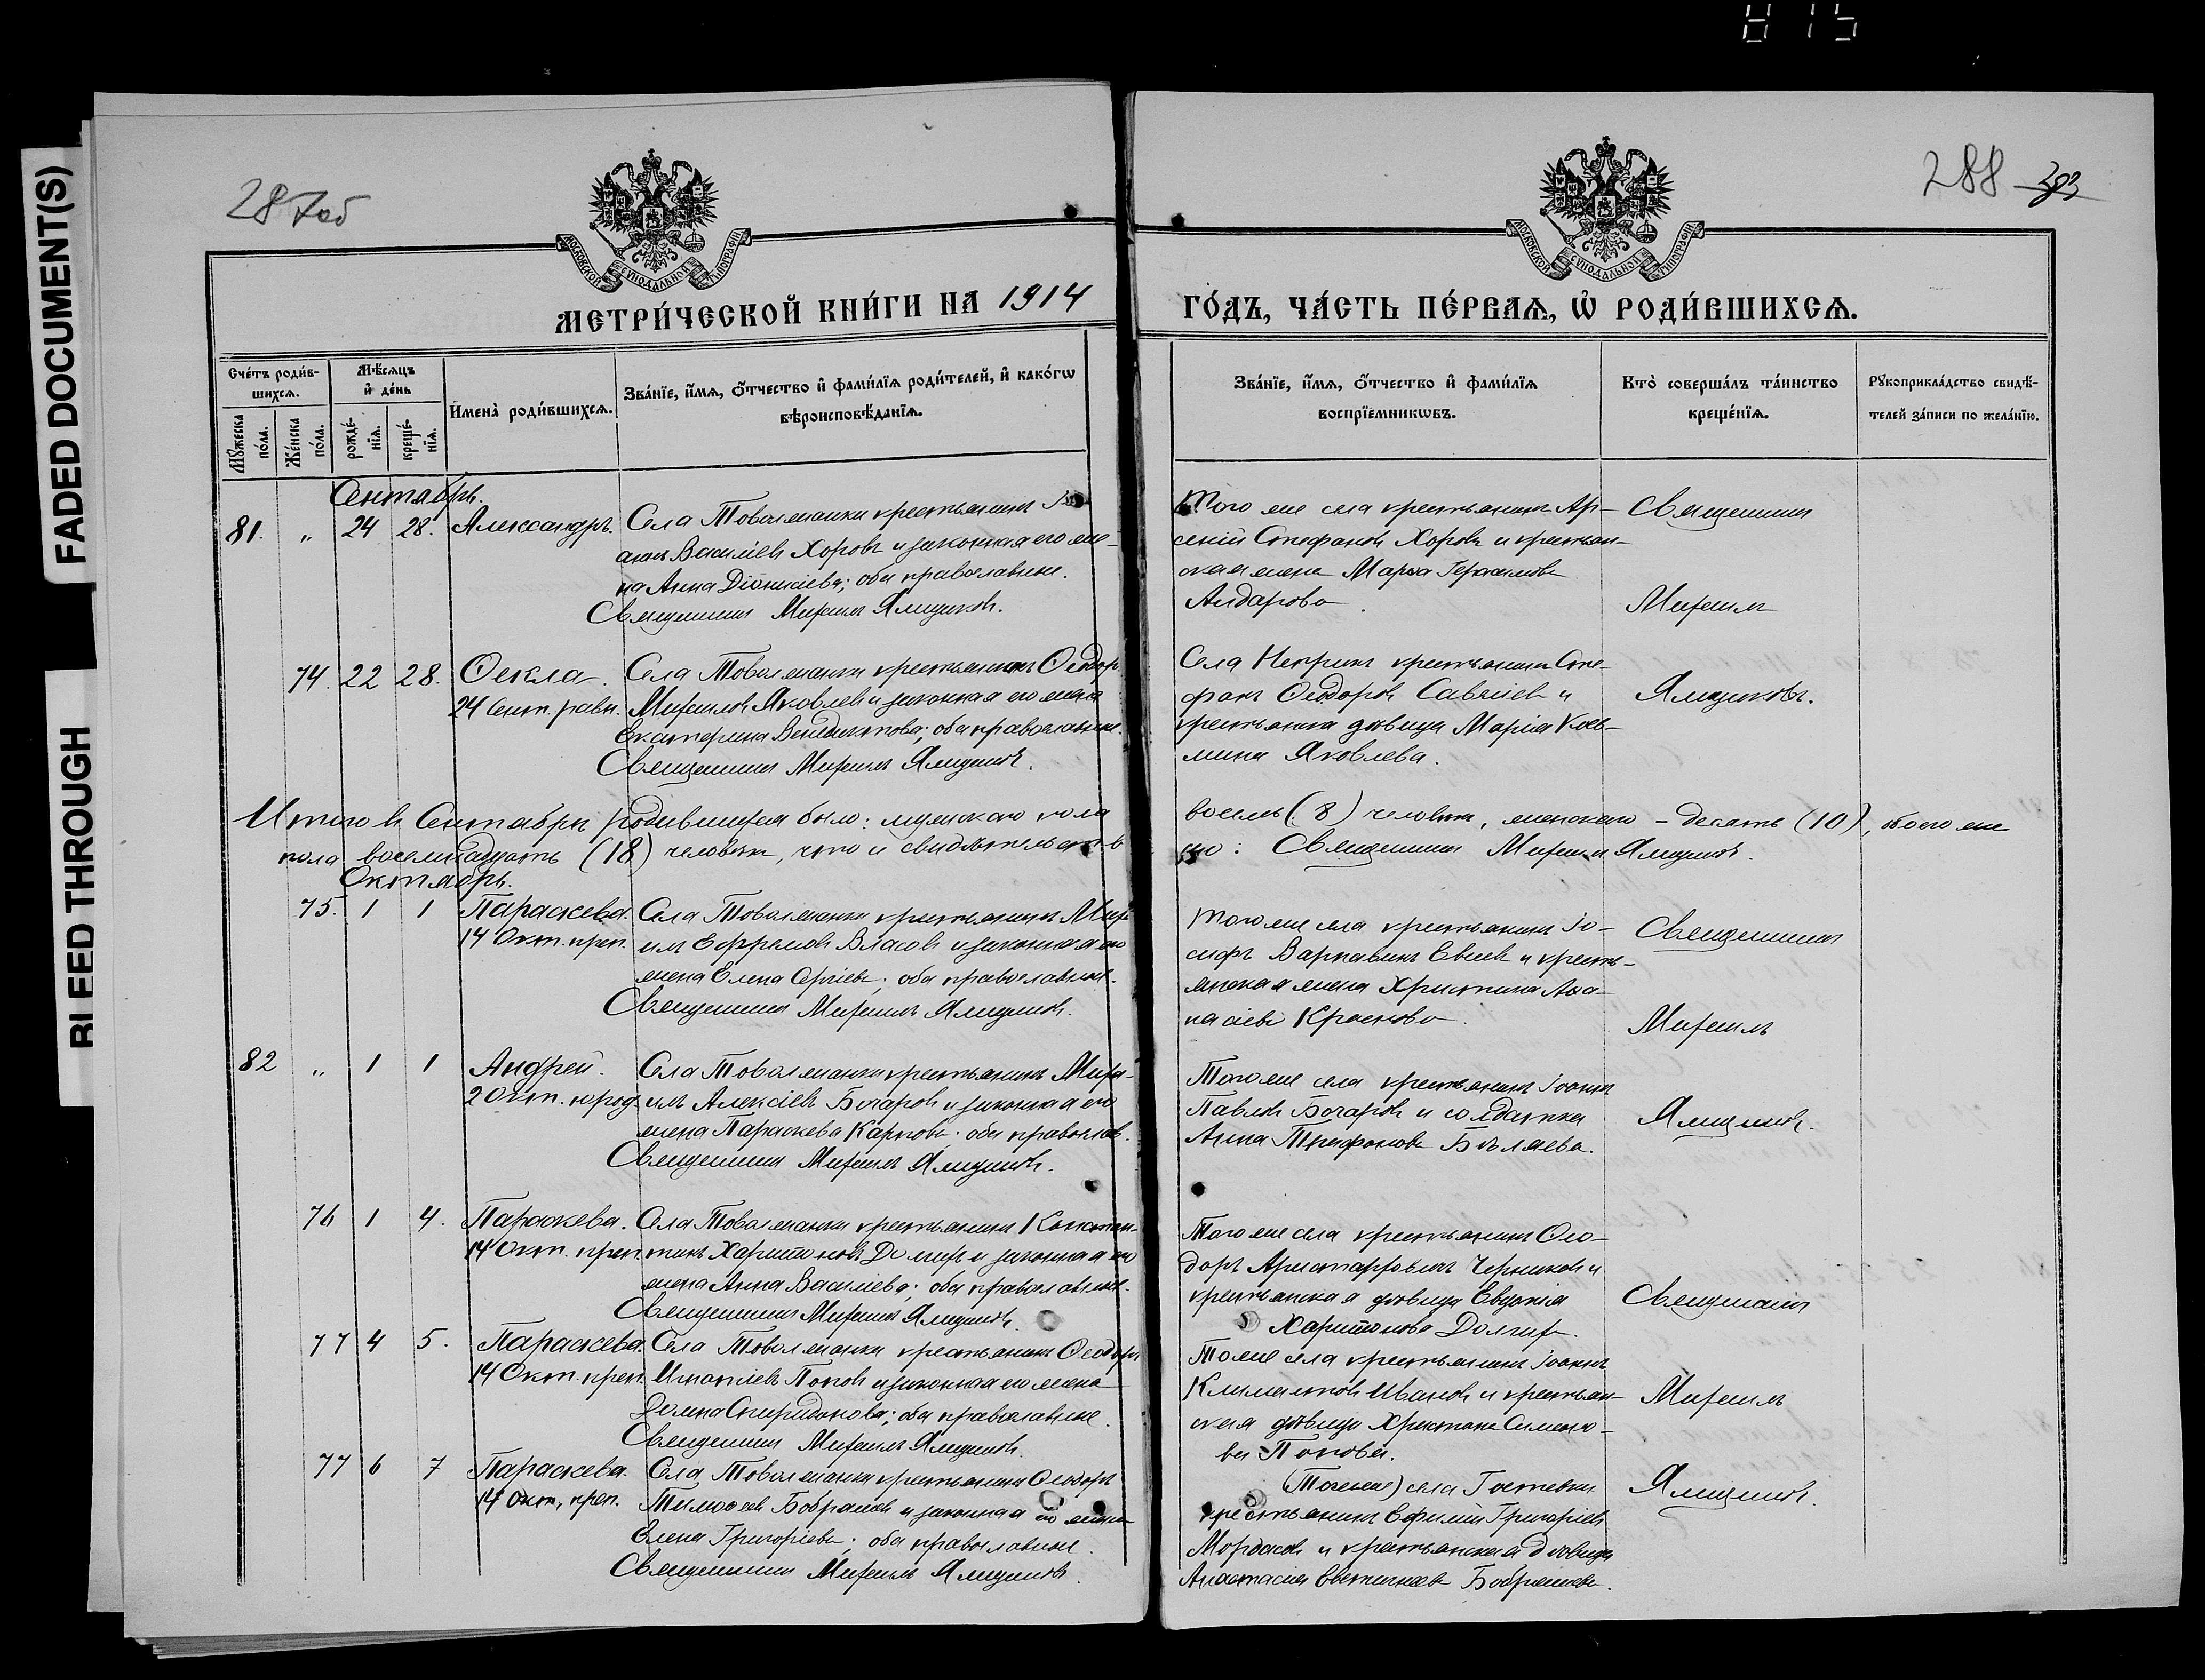 815
FADED DOCUMENT(S)
FEED THROUGH
287об
288 393
МОСКОВСКОЙ СУНОДАЛЬНОЙ ТИПОГРАФІИ
МОСКОВСКОЙ СУНОДАЛЬНОЙ ТИПОГРАФІИ
МЕТРИ́ЧЕСКОЙ КНИ́ГИ НА 1914
ГО́ДЪ, ЧА́СТЬ ПЕ́РВАѦ, Ѡ҆ РОДИ́ВШИХСѦ.
Сче́тъ роди́в-
шихсѧ.
Мꙋжеска по́ла.
Же́нска по́ла.
Мѣ́сѧцъ
и҆ де́нь
рожде́-
нїѧ.
креще́-
нїѧ.
Имена̀ роди́вшихсѧ.
Зва́нїе, и҆́мѧ, ѻ҆́тчество и҆ фами́лїѧ роди́телей, и҆ како́гѡ
вѣроисповѣ́данїѧ.
Зва́нїе, и҆́мѧ, ѻ҆́тчество и҆ фами́лїѧ
воспрїемникѡвъ.
Кто̀ соверша́лъ та́инство
креще́нїѧ.
Рꙋкоприкла́дство свидѣ́-
телей за́писи по жела́нїю.
Сентябрь.
81. „ 24 28. Александръ.
Села Товолжанки крестьянинъ
Василіевъ Хоровъ и законная его же-
на Анна Діонисіева; оба православные.
Священникъ Михаилъ Ямщиковъ.
Того же села крестьянинъ Ар-
сеній Стефановъ Хоровъ и крестьян-
ская жена Марѳа Герасимова
Айдарова.
Священникъ
Михаилъ
Ямщиковъ.
74. 22 28. Ѳекла.
24 Сент. равн.
Села Товолжанки крестьянинъ Ѳеодоръ
Михаиловъ Яковлевъ и законная его жена
Екатерина Венедиктова; оба православные.
Священникъ Михаилъ Ямщиковъ.
Села крестьянинъ Сте-
фанъ Ѳеодоровъ Савеліевъ и
крестьянская дѣвица Марія
Яковлева.
Итого въ Сентябрѣ родившихся было: мужского пола
восемь (8) человѣкъ, женскаго – десять (10), обоего же
пола восемнадцать (18) человѣкъ, что и свидѣтельств
ую: Священникъ Михаилъ Ямщиковъ.
Октябрь.
75. 1 1 Параскева.
14 Окт. преп.
Села Товолжанки крестьянинъ Миха
илъ Ефремовъ Власовъ и законная его
жена Елена Сергіева; оба православные.
Священникъ Михаилъ Ямщиковъ.
Того же села крестьянинъ Іо-
сифъ Варнавинъ Евсеевъ и кресть-
янская жена Христина Аѳа-
насіева Краснова.
Священникъ
Михаилъ
Ямщиковъ.
82 „ 1 1 Андрей.
2 Окт. юрод.
Села Товолжанки крестьянинъ Миха-
илъ Алексіевъ Бочаровъ и законная его
жена Параскева Карпова; оба православ.
Священникъ Михаилъ Ямщиковъ.
Того же села крестьянинъ Іоаннъ
Павловъ Бочаровъ и солдатка
Анна Трифонова Бѣляева.
76 1 4. Параскева.
14 Окт. преп.
Села Товолжанки крестьянинъ Констан-
тинъ Харитоновъ Долгихъ и законная его
жена Анна Василіева; оба православные.
Священникъ Михаилъ Ямщиковъ.
Того же села крестьянинъ Ѳео-
доръ Аристарховъ Черниковъ и
крестьянская дѣвица Евдокія
Харитонова Долгихъ.
Священникъ
Михаилъ
Ямщиковъ.
77 4 5. Параскева.
14 Окт. преп.
Села Товолжанки крестьянинъ Ѳеодоръ
Игнатіевъ Поповъ и законная его жена
Домна Спиридонова; оба православные.
Священникъ Михаилъ Ямщиковъ.
Тоже села крестьянинъ Іоаннъ
Климентовъ Ивановъ и крестьян-
ская дѣвица Христина Симено-
ва Попова.
77 6 7 Параскева.
14 Окт, преп.
Села Товолжанки крестьянинъ Ѳеодоръ
Тимоѳеевъ Бобрешовъ и законная его жена
Елена Григоріева; оба православные.
Священникъ Михаилъ Ямщиковъ.
(Тогоже) села
крестьянинъ Ефимій Григоріевъ
Мордасовъ и крестьянская дѣвица
Анастасія Бобрешова.